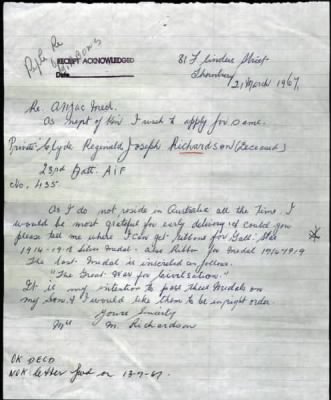 Reply Re
Ribbons
RECEIPT ACKNOWLEDGED
Date
81 Flinders Street
Thornbury
21 March 1967,
Re. Anzac Med.
As next of Kin I wish to apply for same.
Private Clyde Reginald Joseph Richardson (Deceased)
23rd Batt. AIF
No. 435
As I do not reside in Australia all the Time. I
would be most grateful for early delivery & could you
please tell me where I can get ribbons for Gall: Star
1914-1918 Silver Medal. also Ribbon for Medal 1914-1919
The last Medal is inscribed as follows.
"The Great War for Civilisation."
It is my intention to pass these Medals on
my son & I would like them to be in right order.
Yours Sincerely
M. Richardson
OK DECD
NOK letter fwd on 13-7-67.